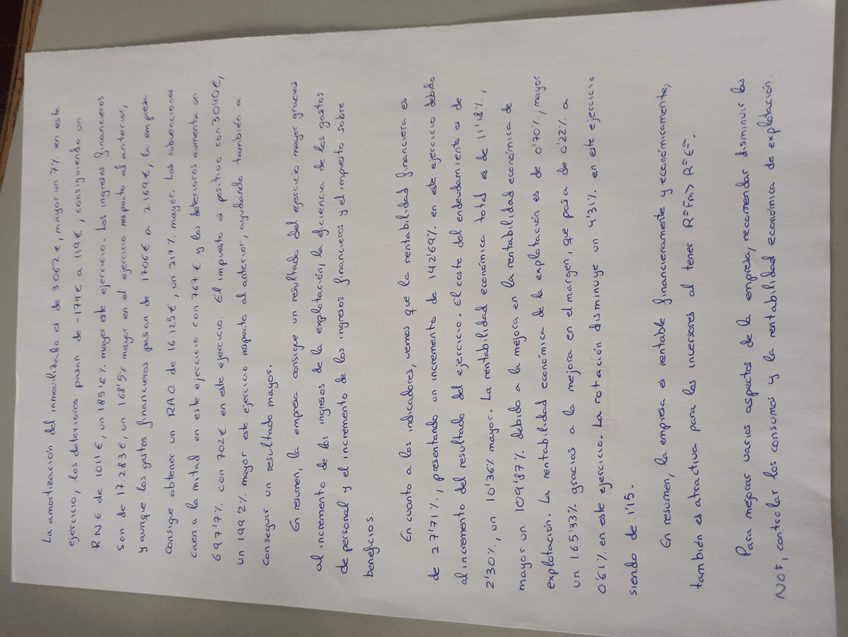 La amortización del inmovilizado es de 3.062 €, mayor un 7% en este
ejercicio, los deterioros pasan de -179 € a 119 €, consiguiendo un
RNE de 1011 €, un 189'6% mayor este ejercicio. Los ingresos financieros
son de 17.283 €, un 168'5% mayor en el ejercicio respecto al anterior,
y aunque los gastos financieros pasan de 1706 € a 2.169 €, la empresa
consigue obtener un RAO de 16.125 €, un 217% mayor. Las subvenciones
caen a la mitad en este ejercicio con 767 € y los deterioros aumenta un
697'7% con 702 € en este ejercicio. El impuesto es positivo con 3040 €,
un 1199'2% mayor este ejercicio respecto al anterior, ayudando también a
conseguir un resultado mayor.
En resumen, la empresa consigue un resultado del ejercicio mayor gracias
al incremento de los ingresos de la explotación, la eficiencia de los gastos
de personal y el incremento de los ingresos financieros y el impuesto sobre
beneficios
En cuanto a los indicadores, vemos que la rentabilidad financiera es
de 27'71%, presentando un incremento de 142'69% en este ejercicio debido
al incremento del resultado del ejercicio. El coste del endeudamiento es de
2'30%, un 10'36% mayor. La rentabilidad económica total es de 11'18%,
mayor un 109'87% debido a la mejora en la rentabilidad económica de
explotación. La rentabilidad económica de la explotación es de 0'70%, mayor
un 165'33% gracias a la mejora en el margen, que pasa de 0'22% a
0'61% en este ejercicio. La rotación disminuye un 4'31% en este ejercicio
siendo de 1'15.
En resumen, la empresa es rentable financieramente y económicamente,
también es atractiva para los inversores al tener Rª Fra > Rª Eª.
Para mejorar varios aspectos de la empresa, recomendar disminuir las
NOF, controlar los consumos y la rentabilidad económica de explotación.